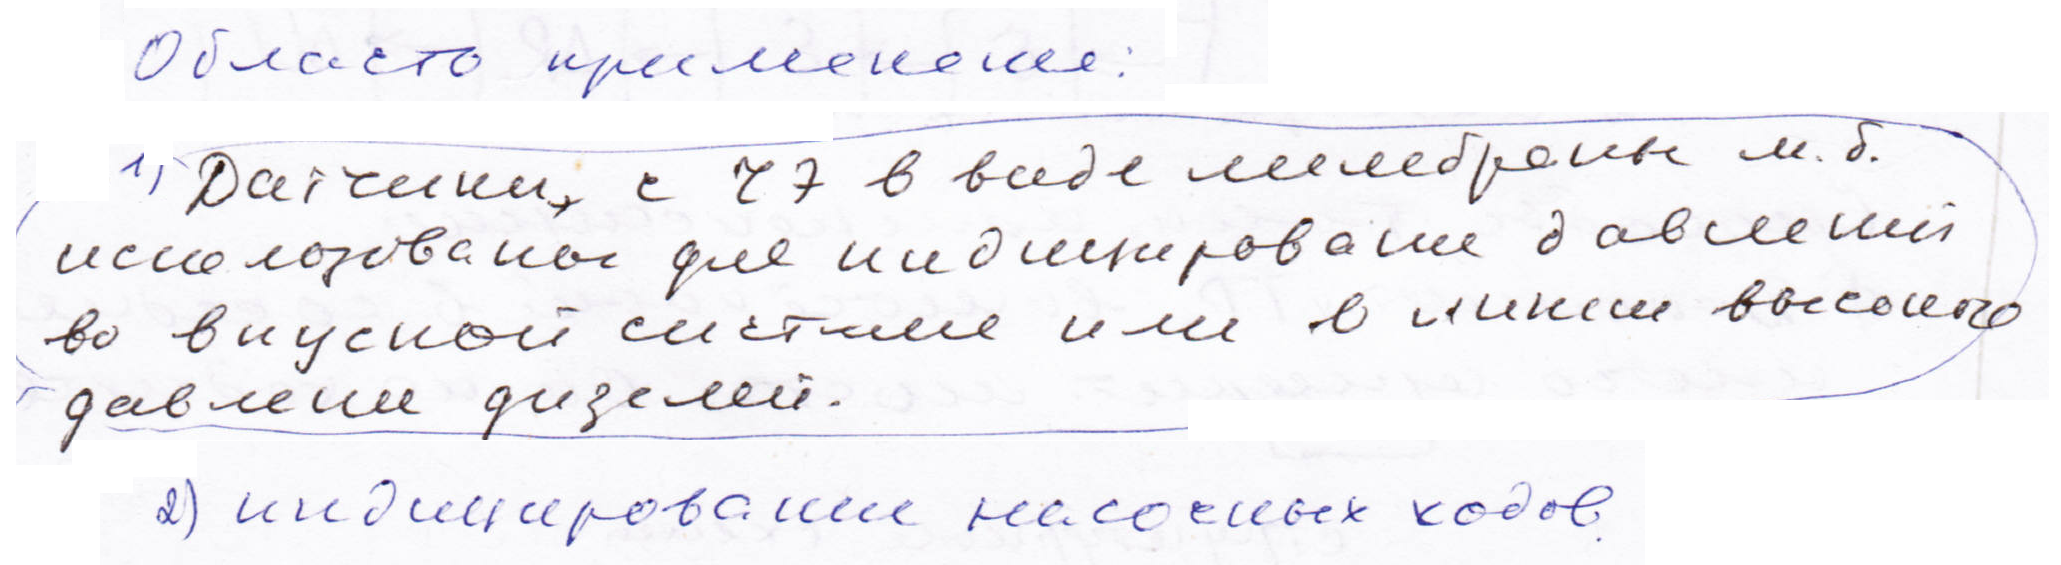 Область применение:
1) Датчики, с ЧЭ в виде мембраны м.б.
использованы для индицирование давлений
во впускной системе или в линии высокого
давлении дизелей.
2) индицирование насосных ходов.